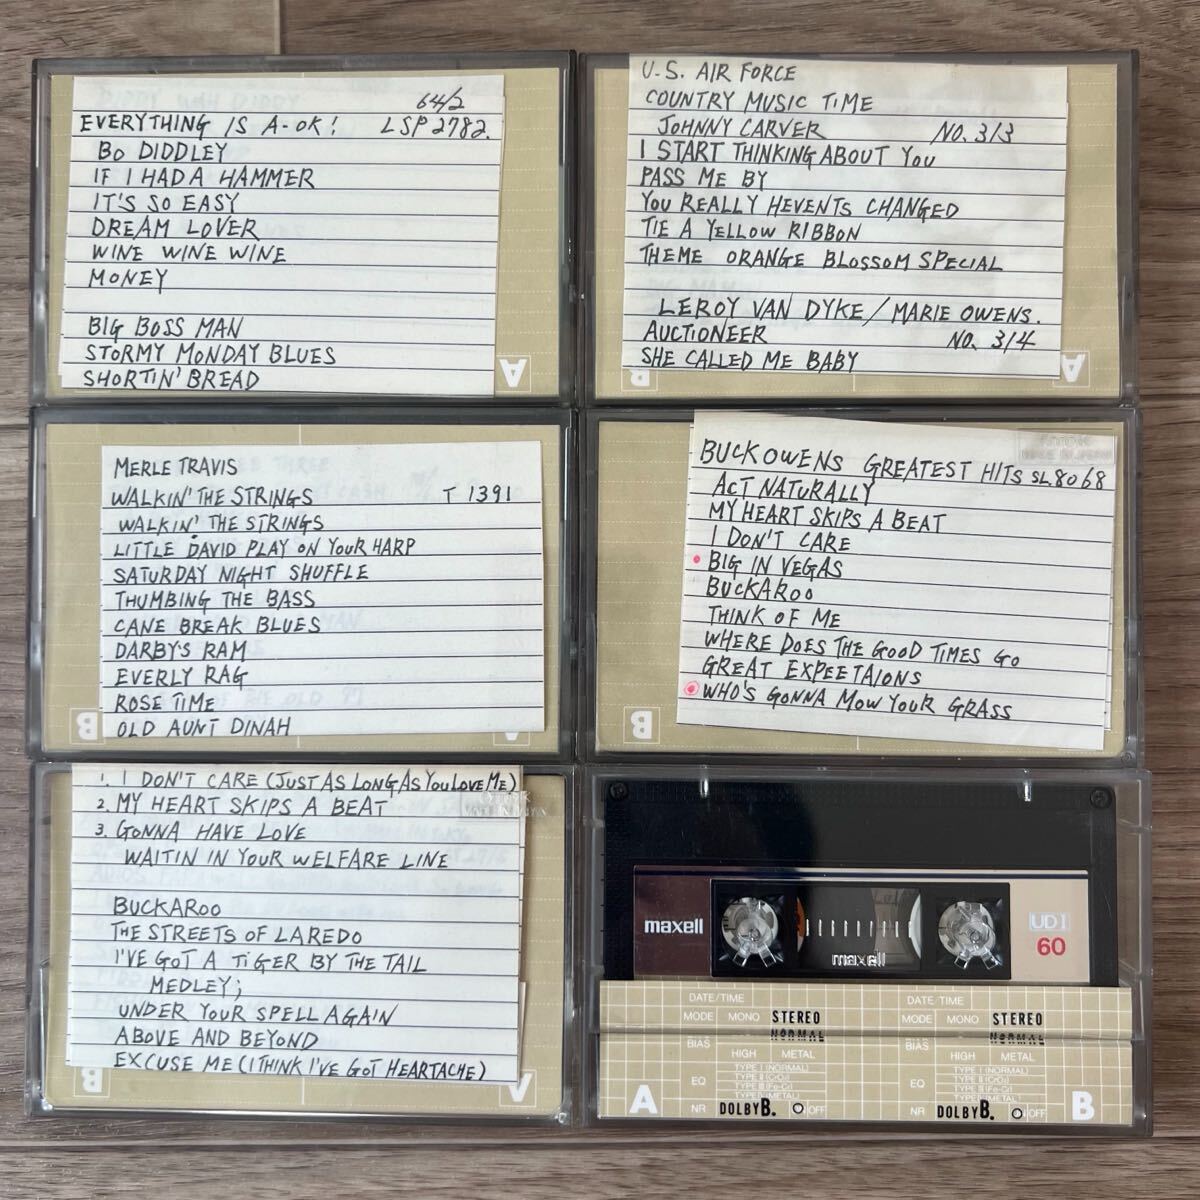 64/2
EVERYTHING IS A-OK! LSP 2782.
BO DIDDLEY
IF I HAD A HAMMER
IT'S SO EASY
DREAM LOVER
WINE WINE WINE
MONEY
BIG BOSS MAN
STORMY MONDAY BLUES
SHORTIN' BREAD
A
U.S. AIR FORCE
COUNTRY MUSIC TIME
JOHNNY CARVER NO. 313
I START THINKING ABOUT YOU
PASS ME BY
YOU REALLY HEVENTS CHANGED
TIE A YELLOW RIBBON
THEME ORANGE BLOSSOM SPECIAL
LEROY VAN DYKE/MARIE OWENS.
AUCTIONEER NO. 314
SHE CALLED ME BABY
B A
MERLE TRAVIS
WALKIN' THE STRINGS T 1391
WALKIN' THE STRINGS
LITTLE DAVID PLAY ON YOUR HARP
SATURDAY NIGHT SHUFFLE
THUMBING THE BASS
CANE BREAK BLUES
DARBY'S RAM
EVERLY RAG
ROSE TIME
OLD AUNT DINAH
B A
BUCK OWENS GREATEST HITS SL8068
ACT NATURALLY
MY HEART SKIPS A BEAT
I DON'T CARE
BIG IN VEGAS
BUCKAROO
THINK OF ME
WHERE DOES THE GOOD TIMES GO
GREAT EXPEETAIONS
WHO'S GONNA MOW YOUR GRASS
B
1. I DON'T CARE (JUST AS LONG AS YOU LOVE ME)
2. MY HEART SKIPS A BEAT
3. GONNA HAVE LOVE
WAITIN IN YOUR WELFARE LINE
BUCKAROO
THE STREETS OF LAREDO
I'VE GOT A TIGER BY THE TAIL
MEDLEY;
UNDER YOUR SPELL AGAIN
ABOVE AND BEYOND
EXCUSE ME (I THINK I'VE GOT HEARTACHE)
B A
maxell
maxell
UDI
60
DATE/TIME DATE/TIME
MODE MONO STEREO MODE MONO STEREO
BIAS NORMAL BIAS NORMAL
HIGH METAL HIGH METAL
EQ TYPE I (NORMAL) EQ TYPE I (NORMAL)
TYPE II (CrO2) TYPE II (CrO2)
TYPE III (Fe-Cr) TYPE III (Fe-Cr)
TYPE IV (METAL) TYPE IV (METAL)
A NR DOLBY B. OFF NR DOLBY B. OFF B